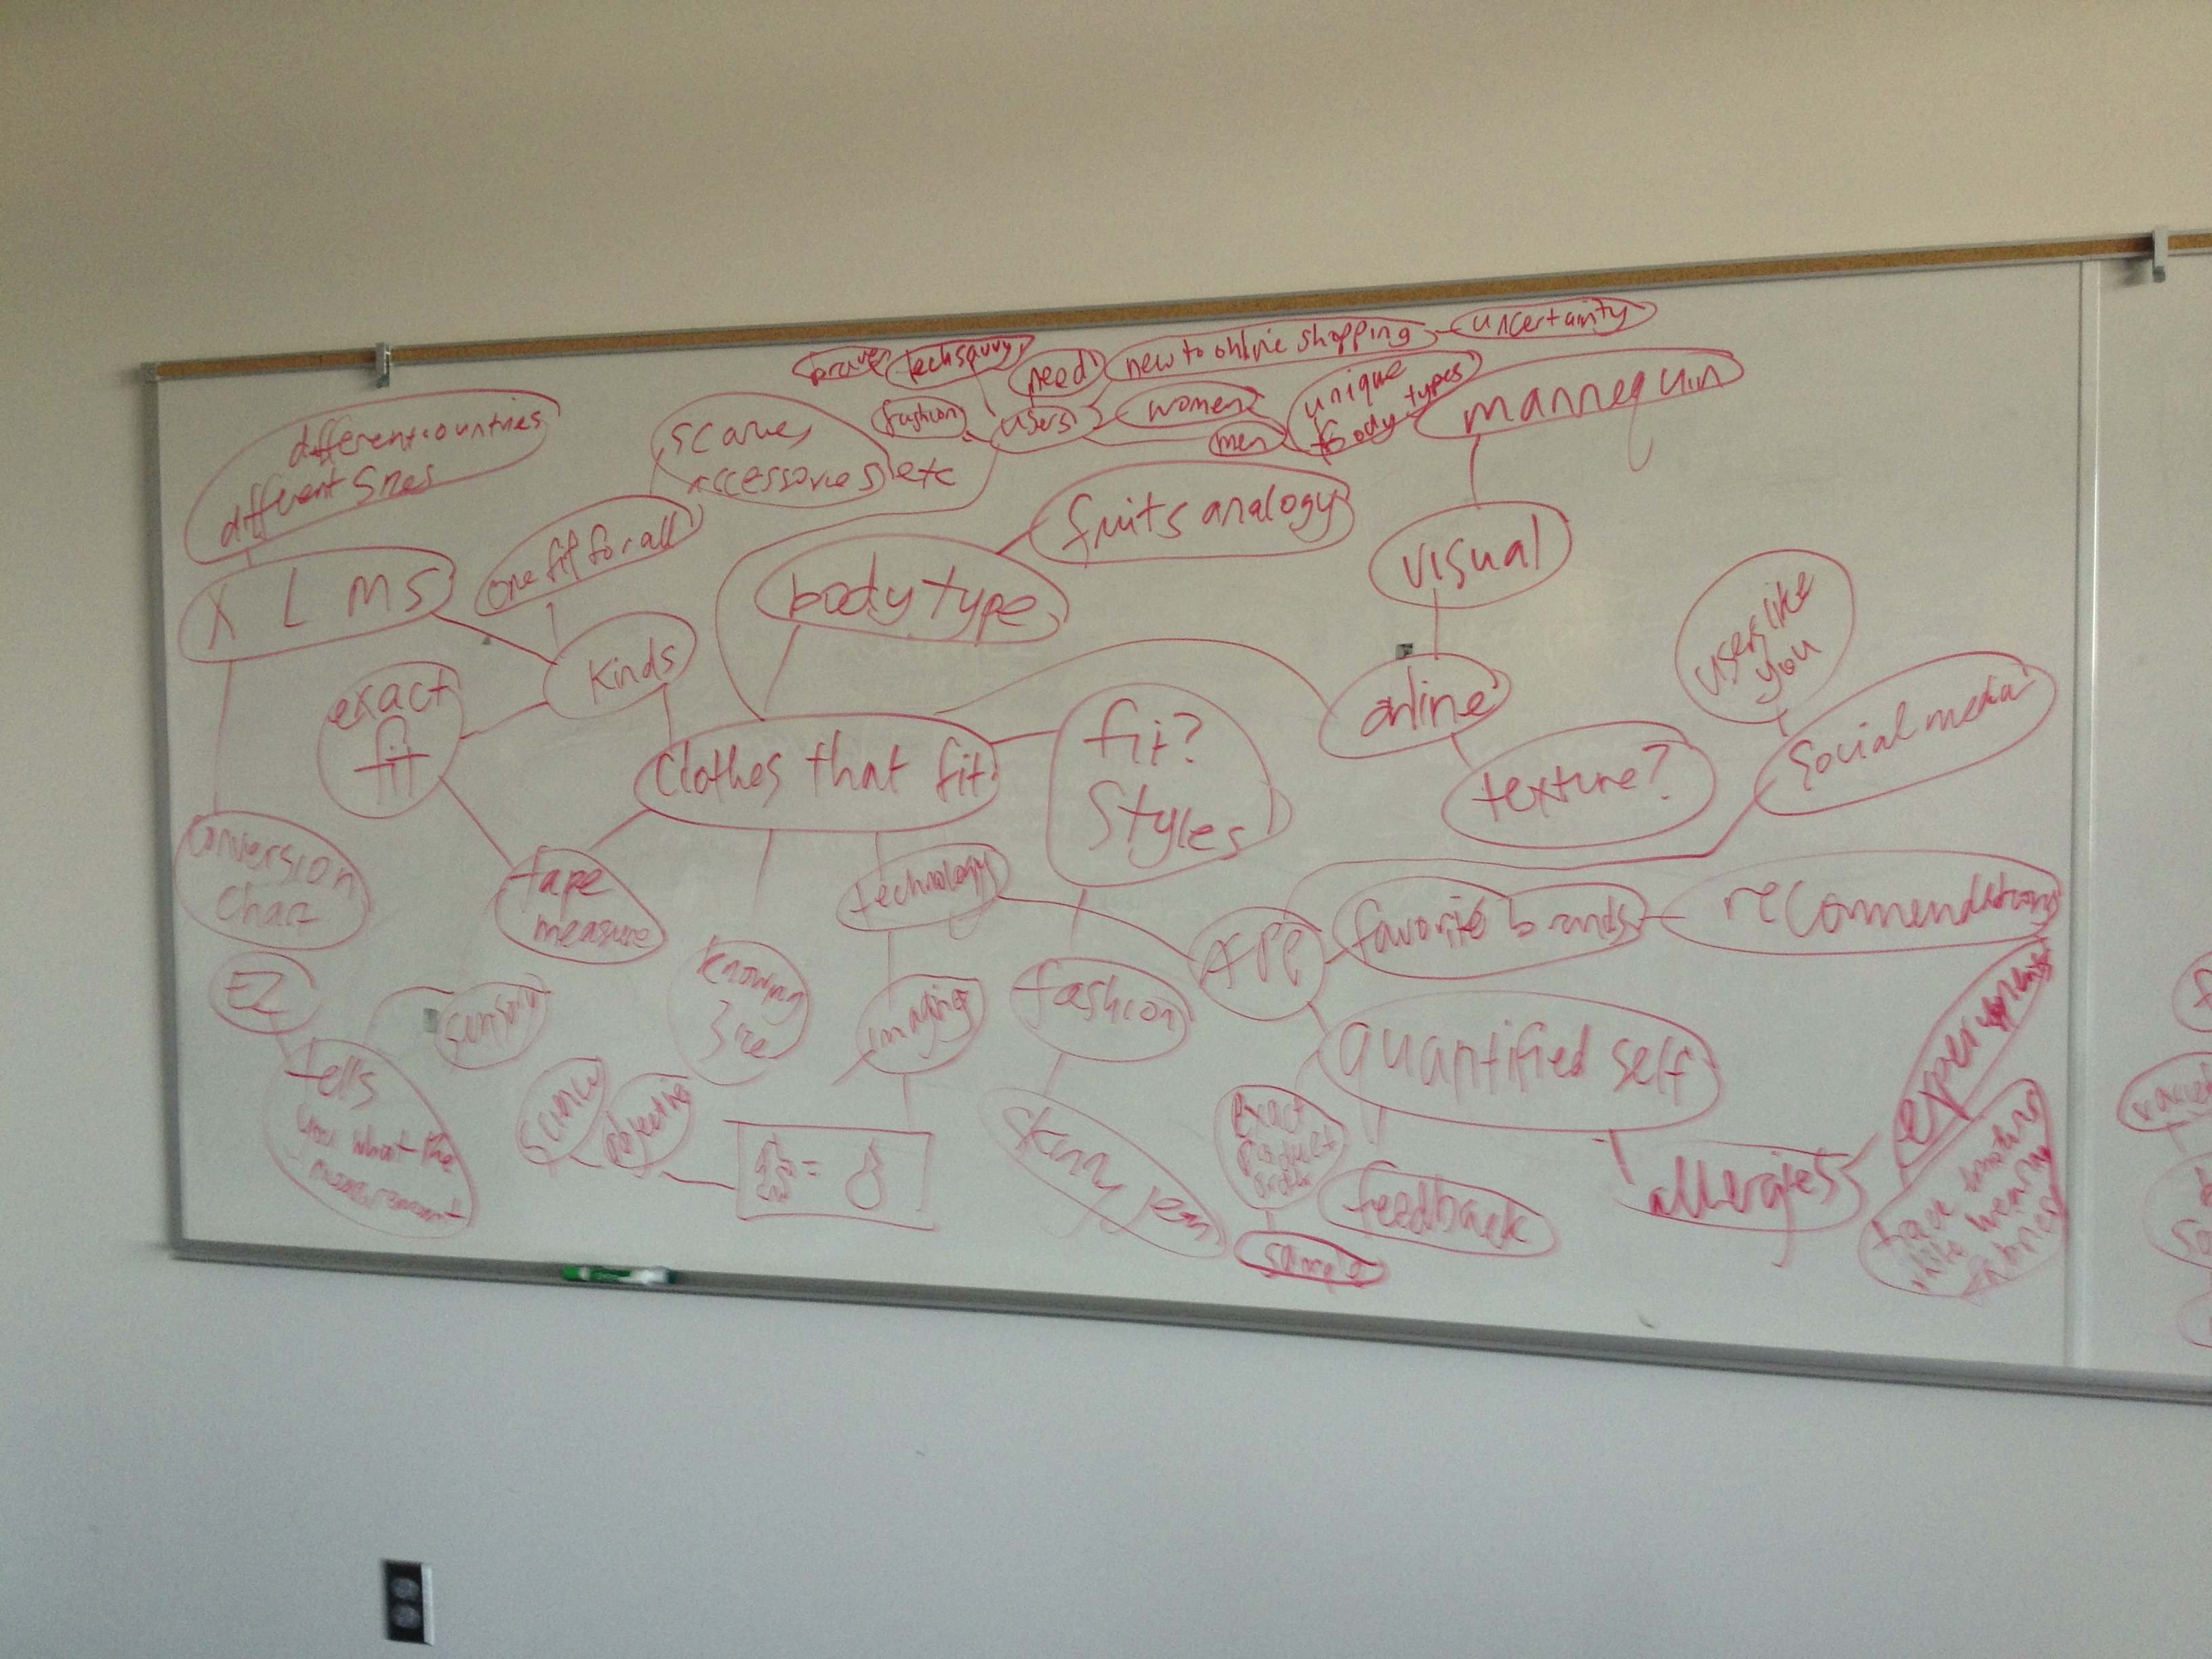 uncertainty
new to online shopping
tech savvy
need
women
fashion
users
men
unique
Body types
mannequin
different countries
different sizes
accessories etc
fruits analogy
one fit for all
visual
X L M S
body type
users like
you
Kinds
exact
fit
online
social media
fit?
Styles
clothes that fit
texture?
conversion
chart
tape
measure
technology
APP
favorite brands
recommendations
EZ
knowing
imaging
fashion
quantified self
experiments
tells
you what the
measurement
=
exact
product
feedback
sample
allergies